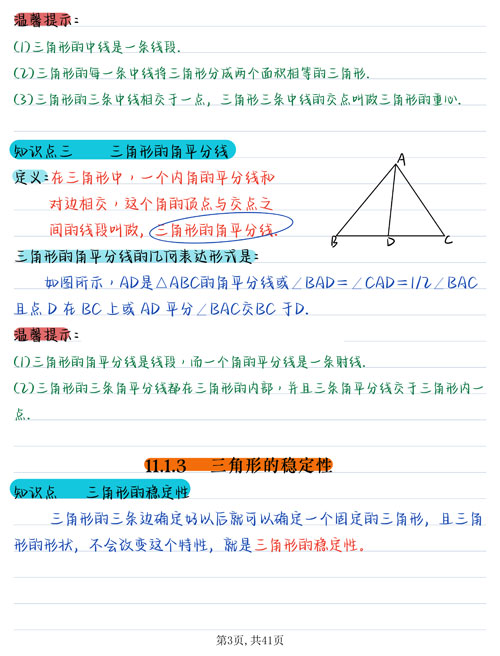 温馨提示:
(1)三角形的中线是一条线段.
(2)三角形的每一条中线将三角形分成两个面积相等的三角形.
(3)三角形的三条中线相交于一点, 三角形三条中线的交点叫做三角形的重心.
知识点三 三角形的角平分线
定义:在三角形中,一个内角的平分线和
对边相交,这个角的顶点与交点之
间的线段叫做, 三角形的角平分线.
A
B D C
三角形的角平分线的几何表达形式是:
如图所示,AD是△ABC的角平分线或∠BAD=∠CAD=1/2∠BAC
且点 D 在 BC 上或 AD 平分∠BAC交BC 于D.
温馨提示:
(1)三角形的角平分线是线段,而一个角的平分线是一条射线.
(2)三角形的三条角平分线都在三角形的内部,并且三条角平分线交于三角形内一
点.
11.1.3 三角形的稳定性
知识点 三角形的稳定性
三角形的三条边确定好以后就可以确定一个固定的三角形, 且三角
形的形状, 不会改变这个特性, 就是三角形的稳定性。
第3页, 共41页